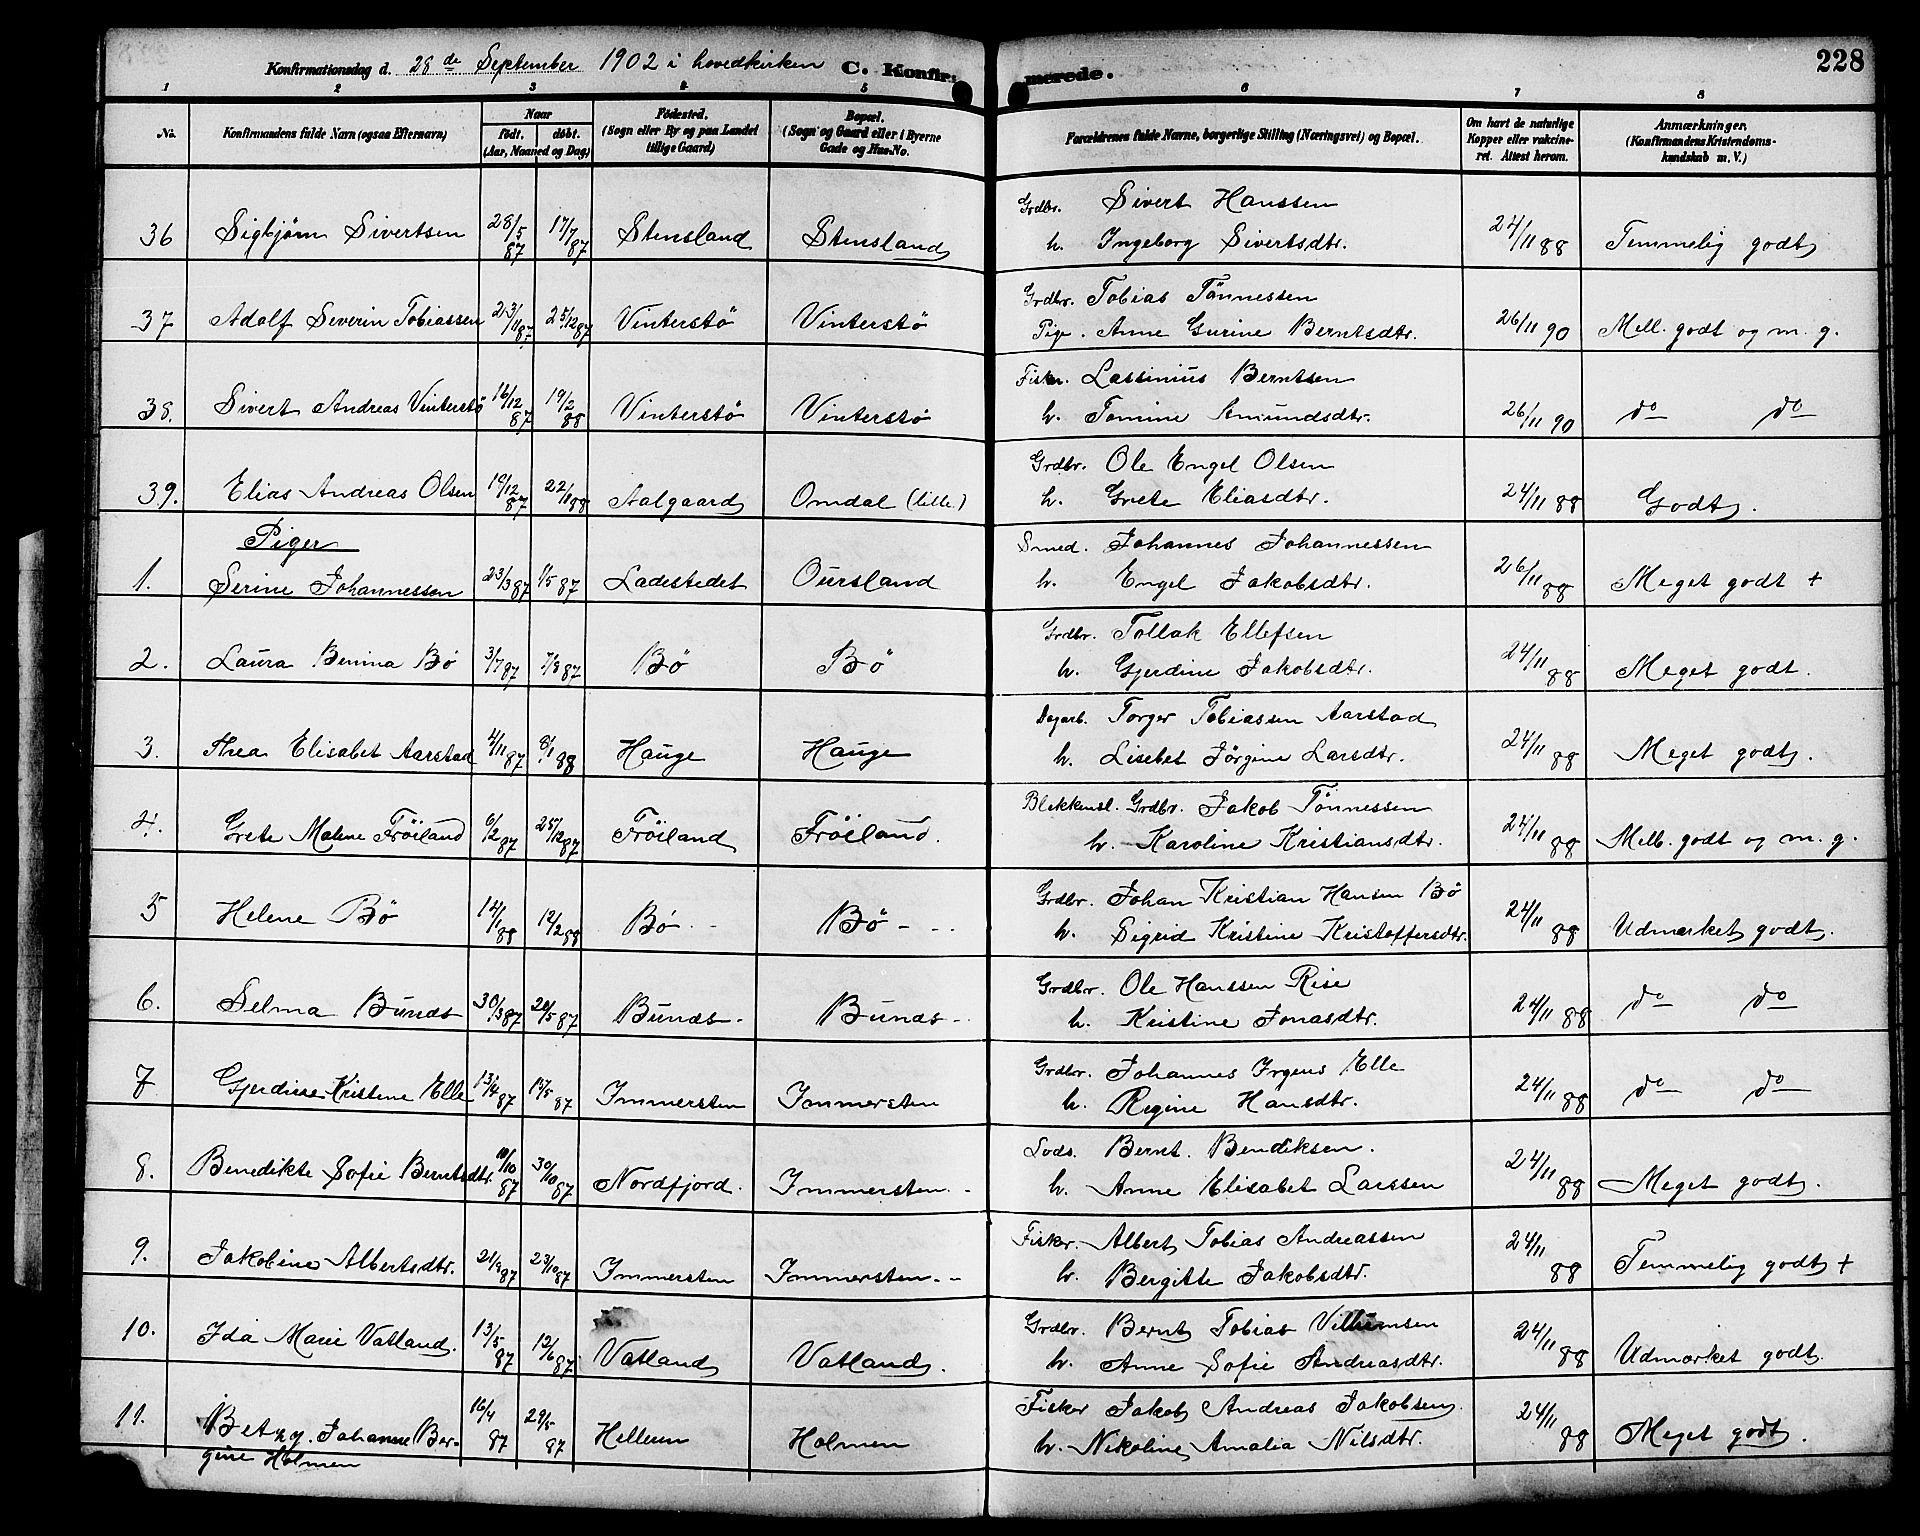 228
Konfirmationsdag d. 28de September 1902 i hovedkirken C. Konfirmerede.
1 2 3 4 5 6 7 8
No. Konfirmandens fulde Navn (ogsaa Efternavn) Naar født. døbt. (Aar, Maaned og Dag) Fødested. (Sogn eller By og paa Landet tillige Gaard) Bopæl. (Sogn og Gaard eller i Byerne Gade og Hus-No. Forældrenes fulde Navne, borgerlige Stilling (Næringsvei) og Bopæl. Om havt de naturlige Kopper eller vakcineret. Attest herom. Anmærkninger. (Konfirmandens Kristendomskundskab m. V.)
36 Sigbjørn Sivertsen 28/5 87 17/7 87 Stensland Stensland Grdbr. Sivert Hanssen
h. Ingeborg Sivertsdtr. 24/11 88 Temmelig godt
37 Adolf Severin Tobiassen 23/11 87 25/12 87 Vinterstø Vinterstø Grdbr. Tobias Tønnessen
Pige. Anne Gurine Berntsdtr. 26/11 90 Mell. godt og m. g.
38. Sivert Andreas Vinterstø 16/12 87 19/2 88 Vinterstø Vinterstø Fisker. Lassinius Berntsen
h. Tomine Amundsdtr. 26/11 90 do do
39. Elias Andreas Olsen 19/12 87 22/1 88 Aalgaard Omdal (lille) Grdbr. Ole Engel Olsen
h. Grete Eliasdtr. 24/11 88 Godt.
Piger
1. Serine Johannessen 23/3 87 1/5 87 Ladestedet Oursland Smed. Johannes Johannessen
h. Engel Jakobsdtr. 26/11 88 Meget godt +
2. Laura Benina Bø 3/7 87 7/8 87 Bø Bø Grdbr. Tollak Ellefsen
h. Gjerdine Jakobsdtr. 24/11 88 Meget godt.
3. Thea Elisabet Aarstad 4/11 87 8/1 88 Hauge Hauge Dagarb. Torger Tobiassen Aarstad
h. Lisebet Jørgine Larsdtr. 24/11 88 Meget godt.
4. Grete Malene Frøiland 6/12 87 25/12 87 Frøiland Frøiland. Blekkensl. Grdbr. Jakob Tønnessen
h. Karoline Kristiansdtr. 24/11 88 Mell. godt og m. g.
5 Helene Bø 14/1 88 12/2 88 Bø Bø Grdbr. Johan Kristian Hansen Bø
h. Sigrid Kristine Kristoffersdtr. 24/11 88 Udmærket godt.
6. Selma Bunds 30/3 87 20/5 87 Bunds Bunds Grdbr. Ole Hanssen Rise
h. Kristine Jonasdtr. 24/11 88 do do
7 Gjerdine Kristene Elle 13/4 87 15/5 87 Immersten Immersten Grdbr. Johannes Irgens Elle
h. Regine Hansdtr. 24/11 88 do do
8. Benedikte Sofie Berntsdtr. 10/10 87 30/10 87 Nordfjord. Immersten Lods. Bernt Bendiksen.
h. Anne Elisabet Larssen 24/11 88 Meget godt.
9. Jakobine Albertsdtr. 21/9 87 23/10 87 Immersten Immersten Fisker. Albert Tobias Andreassen
h. Bergitte Jakobsdtr. 24/11 88 Temmelig godt +
10. Ida Marie Vatland. 13/5 87 12/6 87 Vatland Vatland. Grdbr. Bernt Tobias Villumsen
h. Anne Sofie Andreasdtr. 24/11 88 Udmærket godt.
11. Betzy Johanne Bergine Holmen 16/4 87 29/5 87 Helleren Holmen Fisker Jakob Andreas Jakobsen.
h. Nikoline Amalia Nilsdtr. 24/11 88 Meget godt.